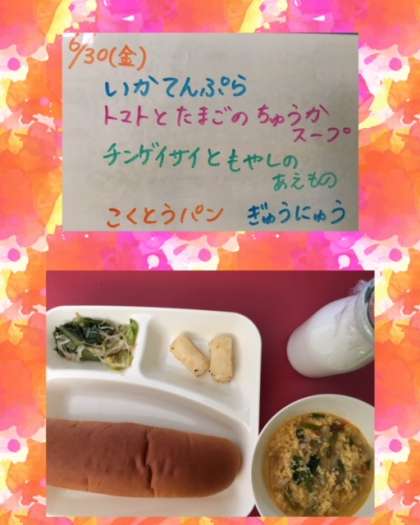 6/30(金)
いかてんぷら
トマトとたまごのちゅうか
スープ
チンゲイサイともやしの
あえもの
こくとうパン ぎゅうにゅう